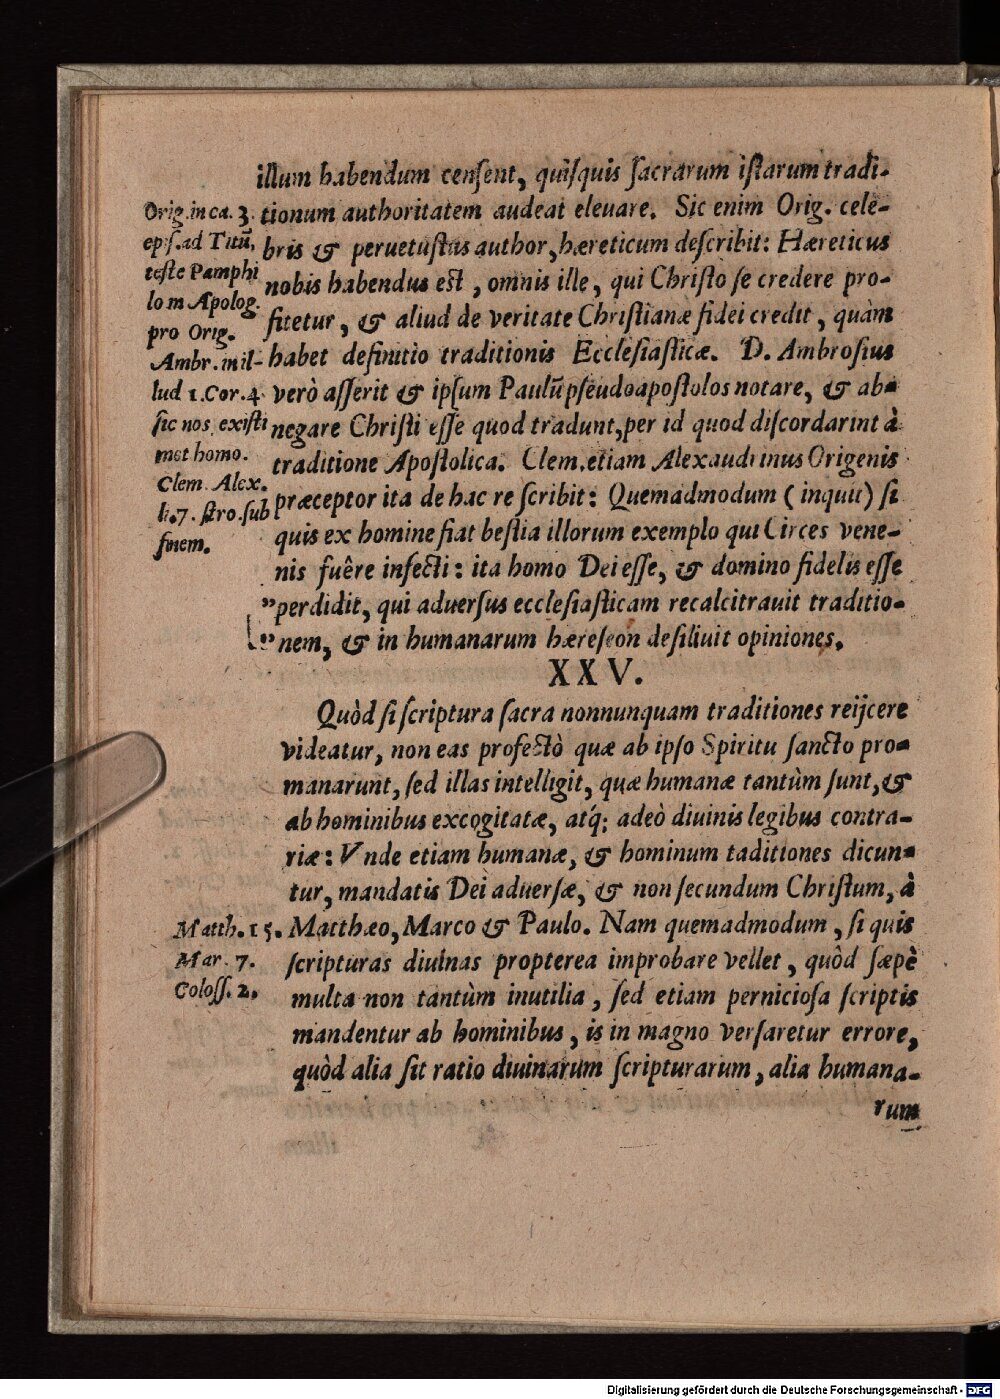 illum habendum censent, quisquis sacrarum istarum tradi-
tionum authoritatem audeat eleuare. Sic enim Orig. cele-
bris & peruetustus author, hæreticum describit: Hæreticus
nobis habendus est, omnis ille, qui Christo se credere pro-
fitetur, & aliud de veritate Christianæ fidei credit, quàm
habet definitio traditionis Ecclesiasticæ. D. Ambrosius
verò asserit & ipsum Paulū pseudoapostolos notare, & ab-
negare Christi esse quod tradunt, per id quod discordarint à
traditione Apostolica. Clem. etiam Alexandrinus Origenis
præceptor ita de hac re scribit: Quemadmodum (inquit) si
quis ex homine fiat bestia illorum exemplo qui Circes vene-
nis fuêre infecti: ita homo Dei esse, & domino fidelis esse
"perdidit, qui aduersus ecclesiasticam recalcitrauit traditio-
"nem, & in humanarum hæreseōn desiliuit opiniones.
Orig. in ca. 3.
epis. ad Titū,
teste Pamphi
lo in Apolog.
pro Orig.
Ambr. in il-
lud 1. Cor. 4
sic nos existi
met homo.
Clem. Alex.
li. 7. stro. sub
finem.
XXV.
Quòd si scriptura sacra nonnunquam traditiones reijcere
videatur, non eas profectò quæ ab ipso Spiritu sancto pro-
manarunt, sed illas intelligit, quæ humanæ tantùm sunt, &
ab hominibus excogitatæ, atq; adeò diuinis legibus contra-
riæ: Vnde etiam humanæ, & hominum taditiones dicun-
tur, mandatis Dei aduersæ, & non secundum Christum, à
Matthæo, Marco & Paulo. Nam quemadmodum, si quis
scripturas diuinas propterea improbare vellet, quòd sæpè
multa non tantùm inutilia, sed etiam perniciosa scriptis
mandentur ab hominibus, is in magno versaretur errore,
quòd alia sit ratio diuinarum scripturarum, alia humana-
rum
Matth. 15.
Mar. 7.
Coloss. 2.
Digitalisierung gefördert durch die Deutsche Forschungsgemeinschaft - DFG